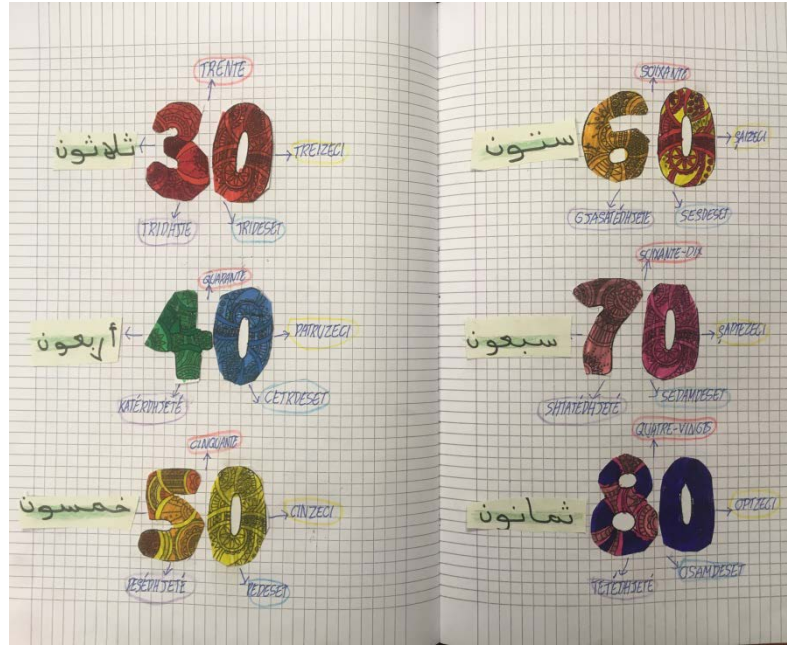 TRENTE
30
ثلاثون
TREIZECI
TRIDHJTE
TRIDESET
QUARANTE
40
أربعون
PATRUZECI
KATËRDHJETË
CETRDESET
CINQUANTE
50
خمسون
CINZECI
PESËDHJETË
PEDESET
SOIXANTE
60
ستون
ŞAIZECI
GJASHTËDHJETE
SESDESET
SOIXANTE-DIX
70
سبعون
ŞAPTEZECI
SHTATËDHJETË
SEDAMDESET
QUATRE-VINGTS
80
ثمانون
OPTZECI
TETËDHJETË
OSAMDESET